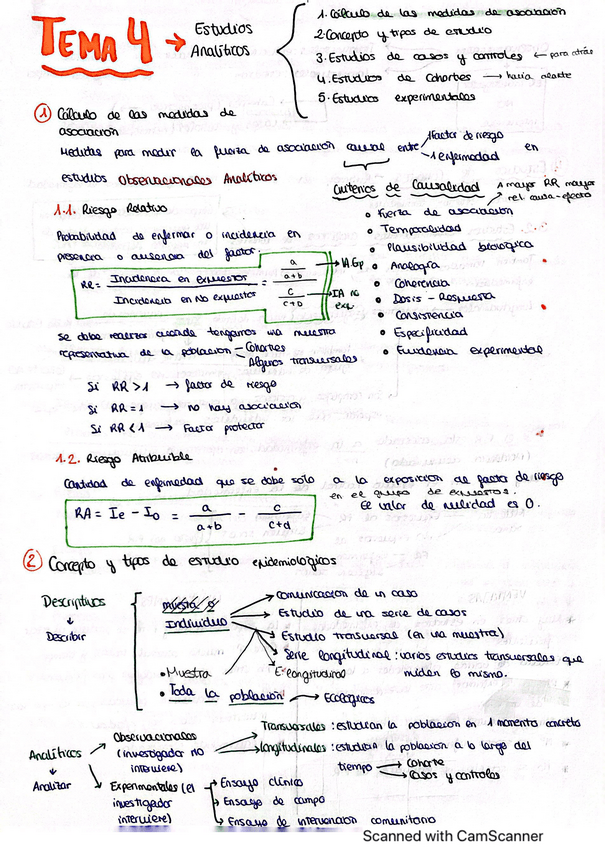 TEMA 4 → Estudios Analíticos
1. Cálculo de las medidas de asociación
2. Concepto y tipos de estudio
3. Estudios de casos y controles ← para atrás
4. Estudios de Cohortes → hacia delante
5. Estudios experimentales
① Cálculo de las medidas de asociación
Medidas para medir la fuerza de asociación causal entre
1 factor de riesgo
1 enfermedad
en
estudios Observacionales Analíticos
Criterios de Causalidad
A mayor RR mayor rel. causa-efecto
• Fuerza de asociación
• Temporalidad
• Plausibilidad biológica
• Analogía
• Coherencia
• Dosis - Respuesta
• Consistencia
• Especificidad
• Evidencia experimental
1.1. Riesgo Relativo
Probabilidad de enfermar o incidencia en
presencia o ausencia del factor.
RR = Incidencia en expuestos / Incidencia en No expuestos = a/a+b / c/c+D
→ IA Exp
→ IA no exp
se debe realizar cuando tengamos una muestra
representativa de la población - Cohortes
Algunos transversales
Si RR > 1 → factor de riesgo
Si RR = 1 → no hay asociación
Si RR < 1 → Factor protector
1.2. Riesgo Atribuible
Cantidad de enfermedad que se debe solo a la exposición al factor de riesgo
en el grupo de expuestos.
El valor de nulidad es 0.
RA = Ie - Io = a/a+b - c/c+d
② Concepto y tipos de estudio epidemiológicos
Descriptivos
↓
Describir
Individuo
→ Comunicación de un caso
→ Estudio de una serie de casos
→ Estudio trasversal (en una muestra)
→ Serie longitudinal: varios estudios transversales que
miden lo mismo.
• Muestra
E. longitudinal
• Toda la población → Ecológicos
Analíticos
↓
Analizar
Observacionales
(investigador no
interviene)
→ Transversales: estudian la población en 1 momento concreto
→ longitudinales: estudian la población a lo largo del
tiempo → Cohorte
→ Casos y controles
Experimentales (el
investigador
interviene)
→ Ensayo clínico
→ Ensayo de campo
→ Ensayo de intervención comunitario
Scanned with CamScanner